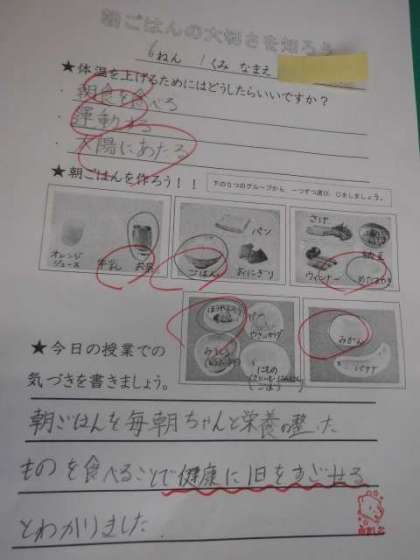 朝ごはんの大切さを知ろう
6ねん 1くみ なまえ
★体温を上げるためにはどうしたらいいですか？
・朝食を食べる
・運動する
・太陽にあたる
★朝ごはんを作ろう！！
下の5つのグループから 一つずつ選び、○をしましょう。
オレンジジュース 牛乳 お茶
ごはん パン おにぎり
さけ 納豆 ウィンナー めだまやき
ほうれんそう
みそしる
みかん バナナ
★今日の授業での
気づきを書きましょう。
朝ごはんを毎朝ちゃんと栄養の整った
ものを食べることで健康に1日をすごせる
とわかりました。